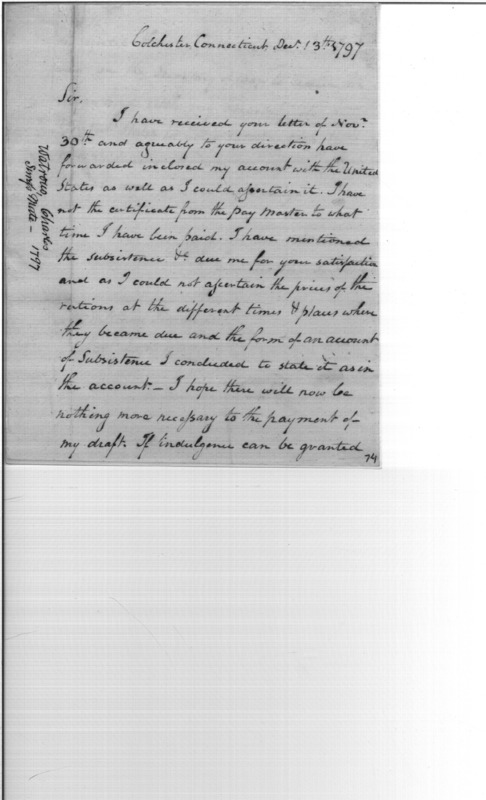 Colchester Connecticut Decr. 13th 1797
Sir,
I have received your letter of Novr.
30th and agreeably to your direction have
forwarded inclosed my account with the United
States as well as I could ascertain it. I have
not the certificate from the Pay Master to what
time I have been paid. I have mentioned
the subsistence &c due me for your satisfaction
and as I could not ascertain the prices of the
rations at the different times & places where
they became due and the form of an account
of Subsistence I concluded to state it as in
the account – I hope there will now be
nothing more necessary to the payment of
my draft. If indulgence can be granted
74
Watrous, Charles
Surg. Mate – 1797